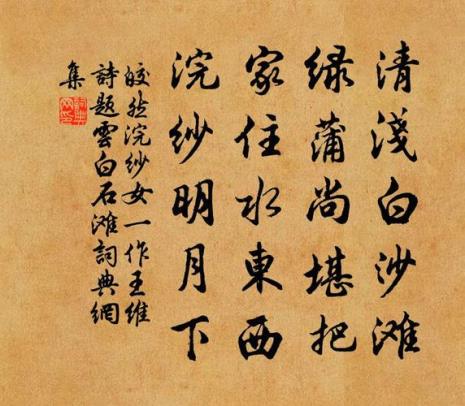 清淺白沙滩
绿蒲尚堪把
家住水東西
浣纱明月下
皎然浣紗女一作王維
詩題雲白石滩詞典網
集